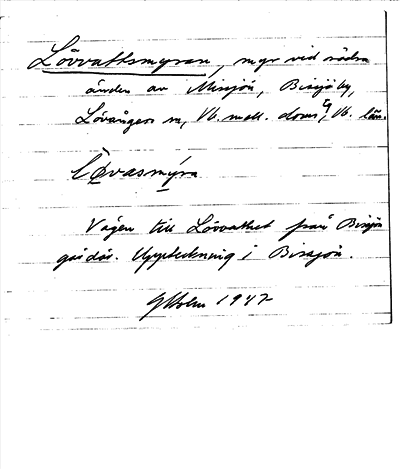 Lövvattsmyran, myr vid södra
änden av Missjön, Bissjö by,
Lövångers sn, Vb. mell. doms., Vb. län.
lövasmýra
Vägen till Lövvattnet från Bissjön
går där. Uppteckning i Bissjön.
G Holm 1947